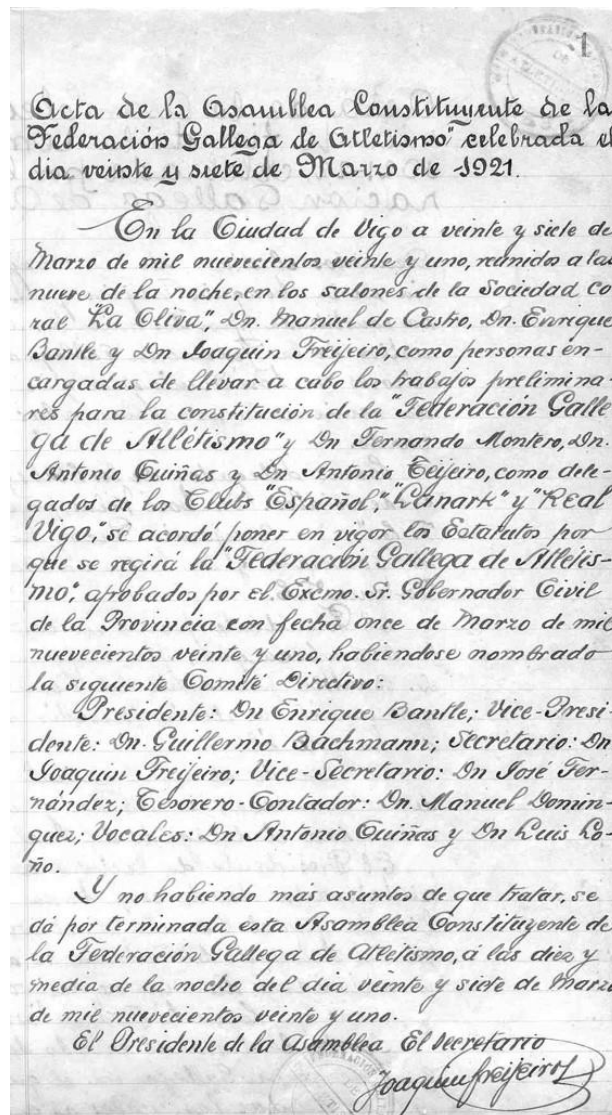 1
Acta de la Asamblea Constituyente de la
"Federación Gallega de Atletismo" celebrada el
dia veinte y siete de Marzo de 1921.
En la Ciudad de Vigo a veinte y siete de
Marzo de mil nuevecientos veinte y uno, reunidos a las
nueve de la noche, en los salones de la Sociedad co
ral "La Oliva", Dn. Manuel de Castro, Dn. Enrique
Bantle y Dn Joaquin Freijeiro, como personas en-
cargadas de llevar a cabo los trabajos prelimina-
res para la constitución de la "Federación Galle
ga de Atlétismo" y Dn Fernando Montero, Dn.
Antonio Guiñas y Dn Antonio Teijeiro, como dele-
gados de los Clubs "Español", "Lanark" y "Real
Vigo," se acordó poner en vigor los Estatutos por
que se regirá la "Federación Gallega de Atlétis-
mo", aprobados por el Excmo. Sr. Gobernador Civil
de la Provincia con fecha once de Marzo de mil
nuevecientos veinte y uno, habiendose nombrado
la siguiente Comité Directivo:
Presidente: Dn Enrique Bantle; Vice-Presi-
dente: Dn. Guillermo Bachmann; Secretario: Dn
Joaquin Freijeiro; Vice-Secretario: Dn José Fer-
nández; Tesorero-Contador: Dn. Manuel Domin-
guez; Vocales: Dn Antonio Guiñas y Dn Luis Lo-
ño.
Y no habiendo más asuntos de que tratar, se
dá por terminada esta Asamblea Constituyente de
la Federación Gallega de Atlétismo, á las diez y
media de la noche del dia veinte y siete de Marzo
de mil nuevecientos veinte y uno.
El Presidente de la Asamblea El Secretario
Joaquin Freijeiro